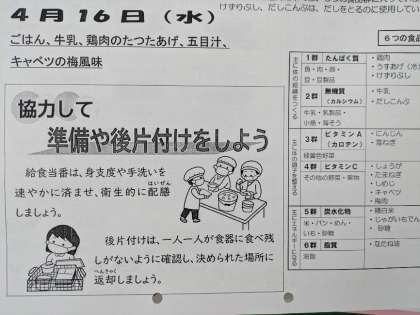 ４月１６日（水）
ごはん、牛乳、鶏肉のたつたあげ、五目汁、
キャベツの梅風味
協力して
準備や後片付けをしよう
給食当番は、身支度や手洗いを
速やかに済ませ、衛生的に配膳
はいぜん
しましょう。
後片付けは、一人一人が食器に食べ残
しがないように確認し、決められた場所に
へんきゃく
返却しましょう。
けずりぶし、だしこんぶは、だしをとるのに使用してい
６つの食品
１群 たんぱく質
魚・肉・卵・
豆・豆製品
・鶏肉
・うすあげ（冷
・けずりぶし
２群 無機質
（カルシウム）
牛乳・乳製品・
小魚・海そう
・牛乳
・だしこんぶ
３群 ビタミンＡ
（カロテン）
緑黄色野菜
・にんじん
・青ねぎ
４群 ビタミンＣ
その他の野菜・果物
・しょうが
・たまねぎ
・しめじ
・キャベツ
・梅肉
５群 炭水化物
米・パン・めん・
いも・砂糖
・精白米
・じゃがいもでん
・砂糖
６群 脂質
油脂
・なたね油